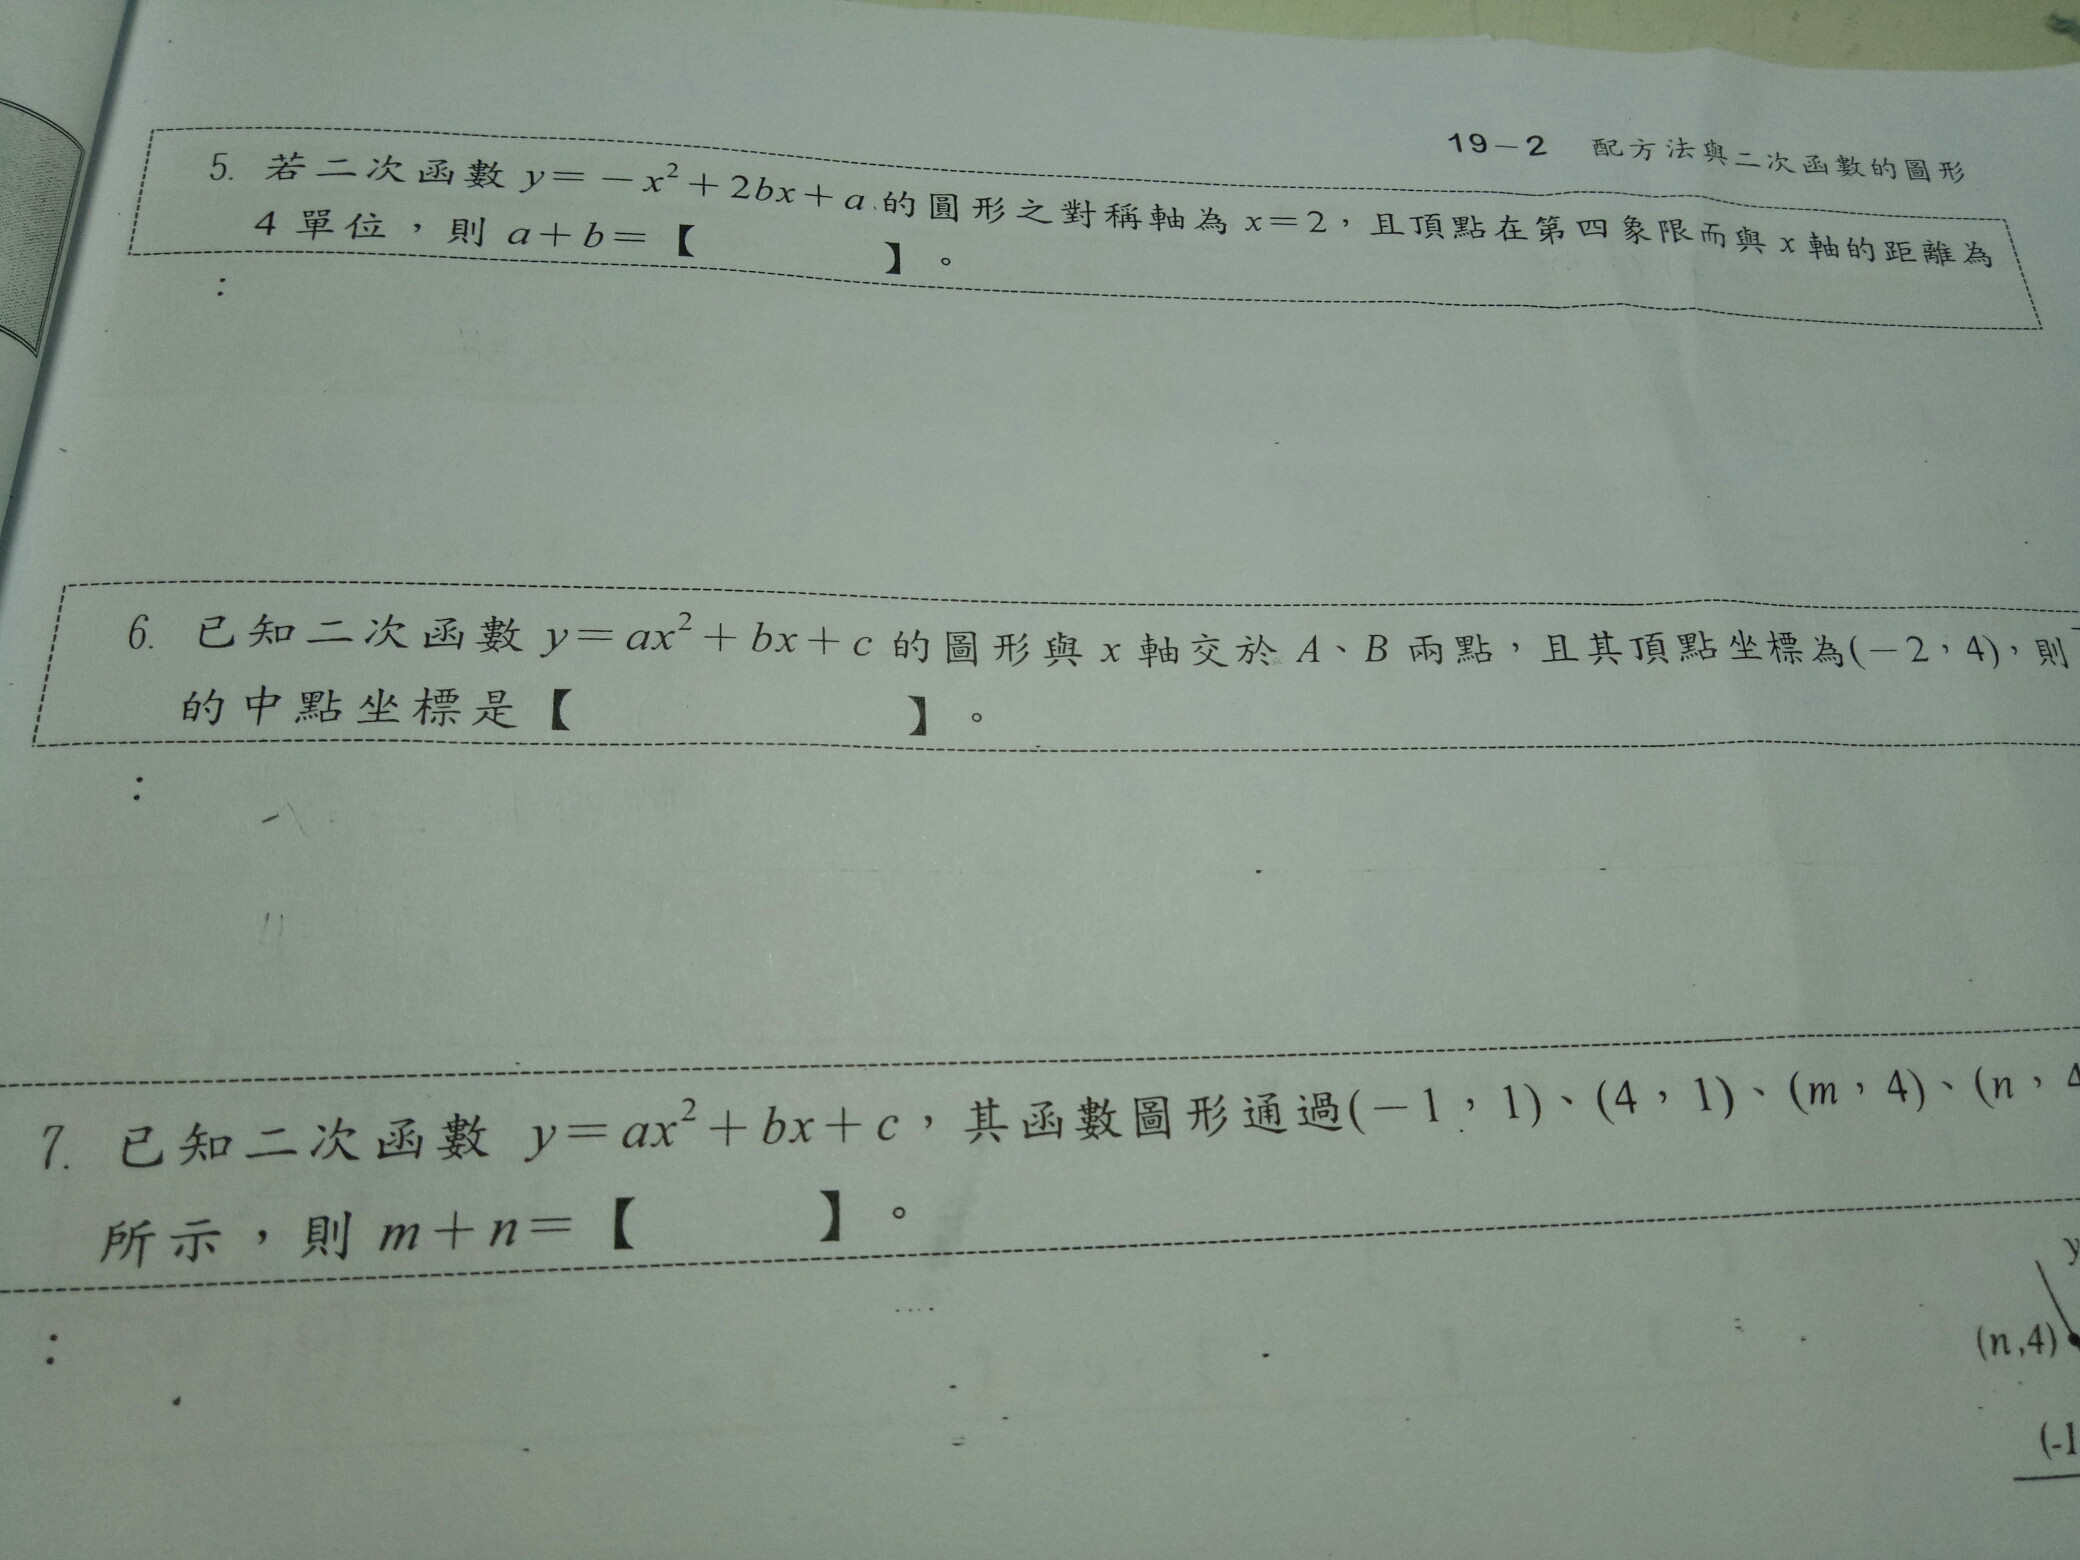 19－2 配方法與二次函數的圖形
5. 若二次函數 y＝－x²＋2bx＋a 的圖形之對稱軸為 x＝2，且頂點在第四象限而與 x 軸的距離為
4 單位，則 a＋b＝【 】。
：
6. 已知二次函數 y＝ax²＋bx＋c 的圖形與 x 軸交於 A、B 兩點，且其頂點坐標為(－2，4)，則
的中點坐標是【 】。
：
7. 已知二次函數 y＝ax²＋bx＋c，其函數圖形通過(－1，1)、(4，1)、(m，4)、(n，4
所示，則 m＋n＝【 】。
：
y
(n,4)
(-1